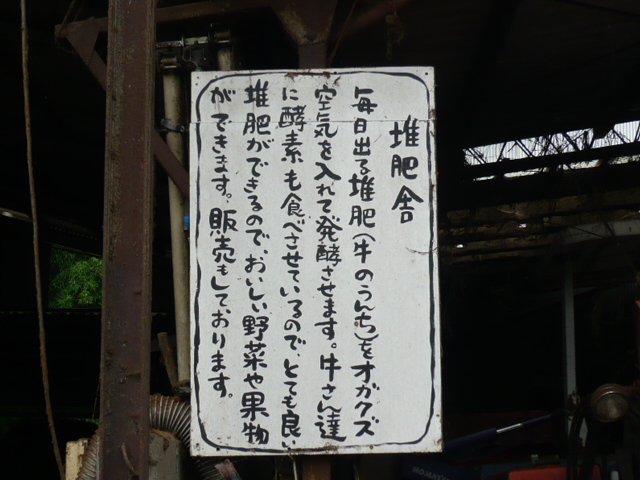 堆肥舎
毎日出る堆肥(牛のうんち)をオガクズ
空気を入れて発酵させます。牛さん達
に酵素も食べさせているので、とても良い
堆肥ができるので、おいしい野菜や果物
ができます。販売もしております。